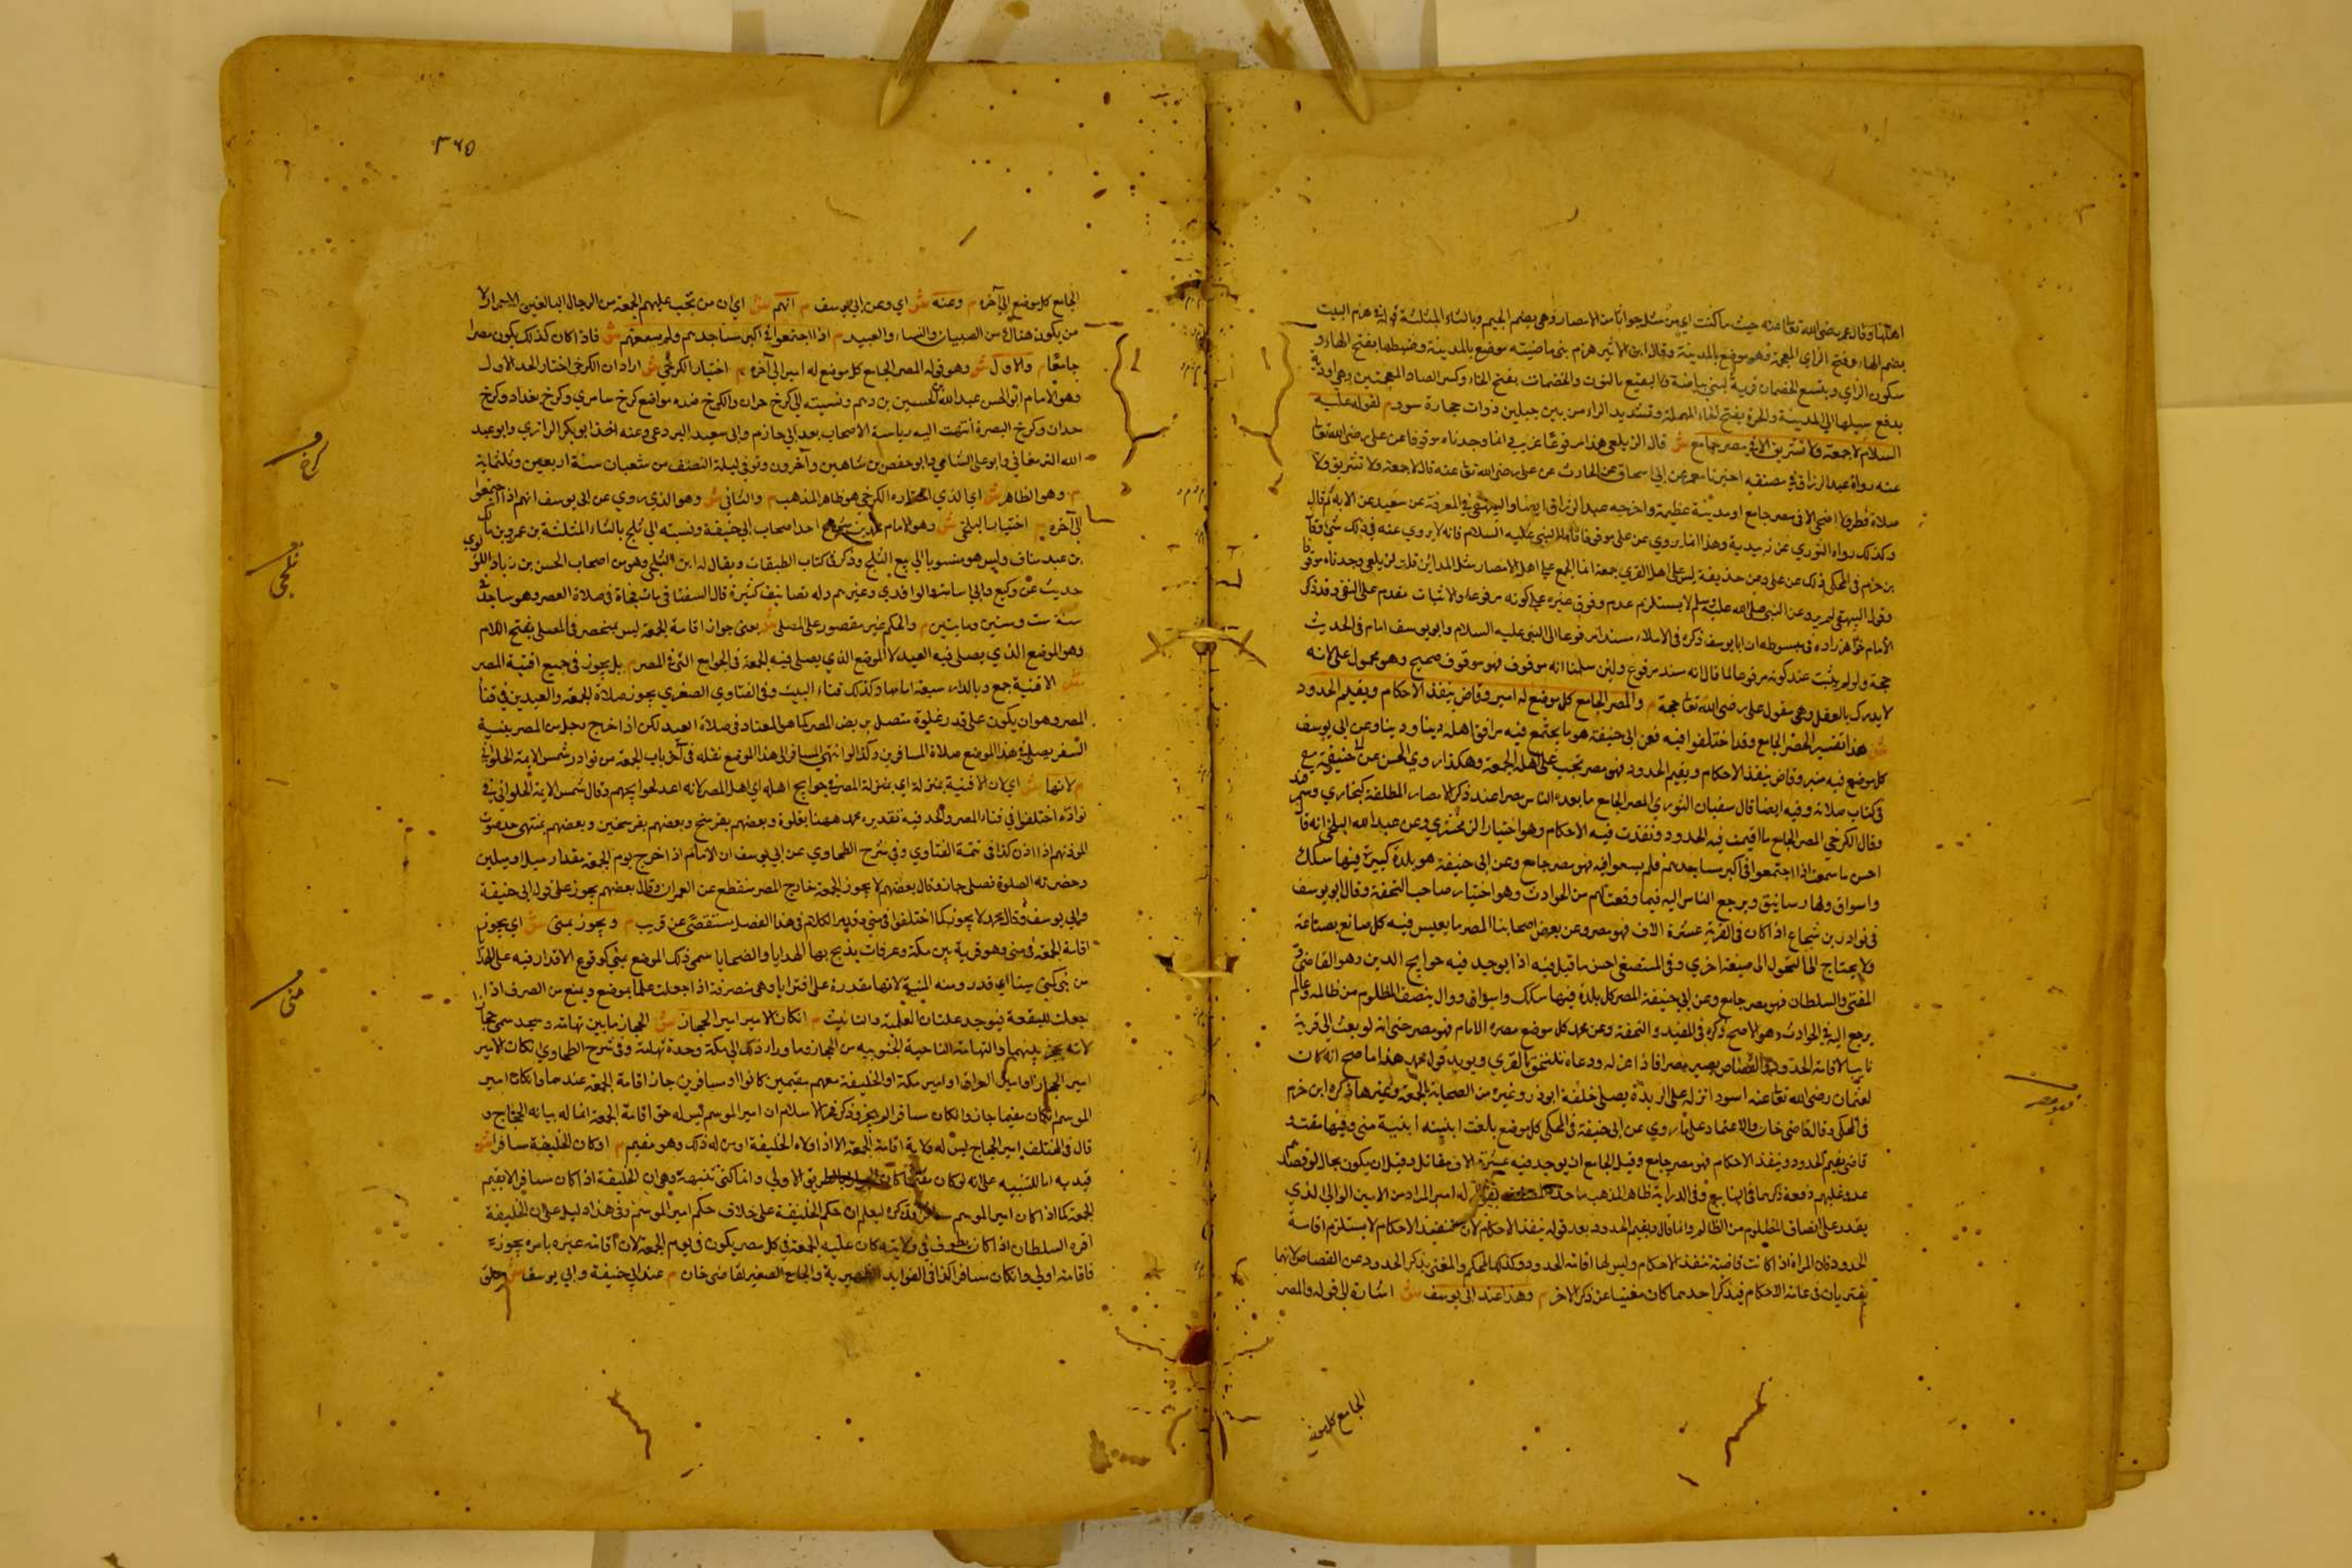 اهلها وقال عمر رضي الله تعا عنه حيث ما كنت اي من مثل جواثا من الامصار وهي بضم الجيم وبالثاء المثلثة قوله في هزم البيت
بضم الهاء وفتح الزاي المعجمة وهو موضع بالمدينة وقال ابن الاثير هزم بني بياضة موضع بالمدينة وضبطها بفتح الهاء و
سكون الزاي وبقيع الخضمان قرية لبني بياضة والبقيع بالنون والخضمات بفتح الخاء وكسر الضاد المعجمتين وهي اودية
يدفع سيلها الي المدينة والحرة بفتح الحاء المهملة وتشديد الراء من بين جبلين ذوات حجارة سود م لقوله عليه
السلام لا جمعة ولا تشريق الا في مصر جامع ش قال الزيلعي هذا مرفوعا غريب انما وجدناه موقوفا عن علي رضي الله تعا
عنه رواه عبد الرزاق في مصنفه اخبرنا معمر عن ابي اسحاق عن الحارث عن علي رضي الله تعا عنه قال لا جمعة ولا تشريق ولا
صلاة فطر ولا اضحي الا في مصر جامع او مدينة عظيمة واخرجه عبد الرزاق ايضا والبيهقي في المعرفة عن سعيد عن
وكذلك رواه الثوري عن زبيد به وهذا انما يروي عن علي موقوفا فاما النبي عليه السلام فانه لا يروي عنه في ذلك شي وقا
بن حزم في المحلي ذلك عن علي وعن حذيفة ليس علي اهل القري جمعة انما الجمع علي اهل الامصار مثل المداين قلت
وقول البيهقي لم يرد عن النبي صلي الله عليه وسلم لا يستلزم عدم وقوف غيره علي كونه مرفوعا والاثبات مقدم علي النفي وقد ذكر
الامام خواهر زاده في مبسوطه ان ابا يوسف ذكره في الاملاء مسندا مرفوعا الي النبي عليه السلام وابو يوسف امام في الحديث
حجة ولو لم يثبت عنده كونه مرفوعا لما قال انه مسند مرفوع ولئن سلمنا انه موقوف فهو موقوف صحيح وهو محمول علي انه
لا يدرك بالعقل وهي مقول علي رضي الله تعا حجة م والمصر الجامع كل موضع له امير وقاض ينفذ الاحكام ويقيم الحدود
ش هذا تفسير المصر الجامع وقد اختلفوا فيه فعن ابي حنيفة هو ما يجتمع فيه مرافق اهله دينا ودينا وعن ابي يوسف
كل موضع فيه منبر وقاض ينفذ الاحكام ويقيم الحدود فهو مصر تجب علي اهله الجمعة وهكذا روي الحسن عن ابي حنيفة
في كتاب صلاته وفيه ايضا قال سفيان الثوري المصر الجامع ما يعده الناس مصرا عند ذكر الامصار المطلقة كبخاري وسمرقند
وقال الكرخي المصر الجامع ما اقيمت فيه الحدود ونفذت فيه الاحكام وهو اختيار الزمخشري وعن عبد الله البلخي انه قا
احسن ما سمعت اذا اجتمعوا في اكبر مساجدهم فلم يسعوا فيه فهو مصر جامع وعن ابي حنيفة هو بلدة كبيرة فيها سكك
واسواق ولها رساتيق ويرجع الناس اليه فيما وقعت لهم من الحوادث وهو اختيار صاحب التحفة وقال ابو يوسف
في نوادر بن شجاع اذا كان في القرية عشرة الاف فهو مصر وعن بعض اصحابنا المصر ما يعيش فيه كل صانع بصناعة
ولا يحتاج الي التحول الي صنعة اخري وفي المستصفي احسن ما قيل فيه اذا يوجد فيه حوايج الدين وهو القاضي و
المفتي والسلطان فهو مصر جامع وعن ابي حنيفة المصر كل بلدة فيها سكك واسواق ووال ينصف المظلوم من ظالمه وعالم
يرجع اليه في الحوادث وهو الاصح ذكره في المفيد والتحفة وعن محمد كل موضع مصره الامام فهو مصر حتي انه لو بعث الي قرية
نايبا لاقامة الحدود والقصاص يصير مصرا فاذا عزله ودعاه تلتحق بالقري ويويد قول محمد هذا ما صح انه كان
لعثمان رضي الله تعا عنه اسود انزله علي الربذة يصلي خلفه ابو ذر وغيره من الصحابة الجمعة وغيرها ذكره ابن حزم
في المحلي وقال قاضي خان والاعتماد علي ما روي عن ابي حنيفة في المحلي كل موضع بلغت ابنيته ابنية مني وفيها مفت و
قاضي يقيم الحدود وينفذ الاحكام فهو مصر جامع وقيل الجامع ان يوجد فيه عشرة الاف مقاتل وقيل ان يكون بحال لو قصدهم
عدو غلبهم دفعة ذكرهما في الينابيع وفي الدراية ظاهر المذهب ما حده المصنف له امير المراد من الامير الوالي الذي
يقدر علي انصاف المظلوم من الظالم وانما قال ويقيم الحدود بعد قوله ينفذ الاحكام لان تنفيذ الاحكام لا يستلزم اقامة
الحدود فان المراة اذا كانت قاضية تنفذ الاحكام وليس لها اقامة الحدود وكذلك المحكم والمغني بذكر الحدود عن القصاص لانهما
يفتريان في عامة الاحكام فبذكر احدهما كان مغنيا عن ذكر الاخر م وهذا عند ابي يوسف ش اشارة الي قوله والمصر
فهو مصر
الجامع كل موضع
٣٦٥
الجامع كل موضع الي آخره م وعنه ش اي وعن ابي يوسف م انهم ش اي ان من تجب عليهم الجمعة من الرجال البالغين الاحرار لا
من يكون هناك من الصبيان والنساء والعبيد م اذا اجتمعوا في اكبر مساجدهم ولم يسعهم ش فاذا كان كذلك يكون مصرا
جامعا م والاول ش وهو قوله المصر الجامع كل موضع له امير الي آخره م اختيار الكرخي ش اراد ان الكرخي اختار الحد الاول
وهو الامام ابو الحسن عبد الله بن الحسين بن دلهم ونسبته الي كرخ حران والكرخ عدة مواضع كرخ سامري وكرخ بغداد وكرخ
حدان وكرخ البصرة انتهت اليه رياسة الاصحاب بعد ابي حازم وابي سعيد البردعي وعنه اخذ ابو بكر الرازي وابو عبد
الله الدامغاني وابو علي الشاشي وابو حفص بن شاهين وآخرون وتوفي ليلة النصف من شعبان سنة اربعين وثلثماية
م وهو الظاهر ش اي الذي اختاره الكرخي هو ظاهر المذهب م والثاني ش وهو الذي روي عن ابي يوسف انهم اذا اجتمعوا
الي آخره م اختيار البلخي ش وهو الامام محمد بن شجاع احد اصحاب ابي حنيفة ونسبته الي ثلج بالثاء المثلثة بن عمرو بن مالك
بن عبد مناف وليس هو منسوبا الي بيع الثلج وذكر في كتاب الطبقات ويقال له ابن الثلجي وهو من اصحاب الحسن بن زياد اللولوي
حديث عن وكيع وابي اسامة والواقدي وغيرهم وله تصانيف كثيرة قال السمعاني مات فجاة في صلاة العصر وهو ساجد
سنة ست وستين ومايتين م والحكم غير مقصور علي المصلي ش يعني جواز اقامة الجمعة ليس بمنحصر في المصلي بفتح اللام
وهو الموضع الذي يصلي فيه العيد لا الموضع الذي يصلي فيه الجمعة في الجوامع التي في المصر م بل يجوز في جميع افنية المصر
ش الافنية جمع وكذلك فناء البيت وفي الفتاوي الصغري يجوز صلاة الجمعة والعيدين في فناء
المصر وهو ان يكون علي قدر غلوة متصل بربض المصر كما هو المعتاد في صلاة العيد لكن اذا خرج رجل من المصر بنية
السفر يصلي في هذا الموضع صلاة المسافرين وكذا لو انتهي المسافر الي هذا الموضع نقله في آخر باب الجمعة من نوادر شمس الايمة الحلواني
م لانها ش اي لان الافنية بمنزلة اي بمنزلة المصر في حوايج اهله اي اهل المصر لانه اعد لحوايجهم وقال شمس الايمة الحلواني في
نوادره اختلفوا في فناء المصر والحد فيه تقدير محمد ههنا بغلوة وبعضهم بفرسخ وبعضهم بفرسخين وبعضهم بمنتهي حد صوت
الموذنهم اذا اذن كذا في تتمة الفتاوي وفي شرح الطحاوي عن ابي يوسف ان الامام اذا خرج يوم الجمعة مقدار ميل او ميلين
وحضرته الصلوة فصلي جاز وقال بعضهم لا يجوز الجمعة خارج المصر منقطع عن العمران وقال بعضهم يجوز علي قول ابي حنيفة
وابي يوسف وقال محمد لا يجوز كما اختلفوا في مني وتدبر الكلام في هذا الفصل مستقصي عن قريب م ويجوز بمني ش اي يجوز
اقامة الجمعة في مني وهو قرية بين مكة وعرفات يذبح بها الهدايا والضحايا سمي ذلك الموضع مني لوقوع الاقدار فيه علي الهدايا
من مني يمني منيا اي قدر ومنه المنية لانها مقدرة علي البرايا وهي منصرفة اذا جعلت علما بموضع ويمنع من الصرف اذا
جعلت للبقعة فيوجد علتان العلمية والتانيث م ان كان الامير امير الحجاز ش الحجاز ما بين تهامة ونجد سمي حجازا
لانه يحجز بينهما والتهامة الناحية الجنوبية من الحجاز وما وراء ذلك الي مكة وجدة تهامة وفي شرح الطحاوي ان كان الامير
امير الحجاز او امير العراق او امير مكة او الخليفة معهم مقيمين كانوا او مسافرين جاز اقامة الجمعة عندهما وان كان امير
الموسم ان كان مقيما جاز وان كان مسافرا لم يجز وذكر فخر الاسلام ان امير الموسم ليس له حق اقامة الجمعة انما له بيانه الحجاج و
قال في المختلف امير الحجاج ليس له ولاية اقامة الجمعة الا اذا ولاه الخليفة او من له ذلك وهو مقيم م او كان الخليفة مسافرا ش
قيد به اما للتنبيه علي انه لو كان مقيما كان بالطريق الاولي وانما كني تنبيها وهي ان الخليفة اذا كان مسافرا لا يقيم
الجمعة كما اذا كان امير الموسم مسافرا وذكره ليعلم ان حكم الخليفة علي خلاف حكم امير الموسم وفي هذا دليل علي ان الخليفة
اقره السلطان اذا كان يطوف في ولايته كان عليه الجمعة في كل مصر يكون فيه يوم الجمعة لان اقامة غيره بامره يجوز
فاقامته اولي وان كان مسافرا كذا في الفوايد الظهيرية والجامع الصغير لقاضي خان م عند ابي حنيفة وابي يوسف ش
كرخ
ثلجي
مني